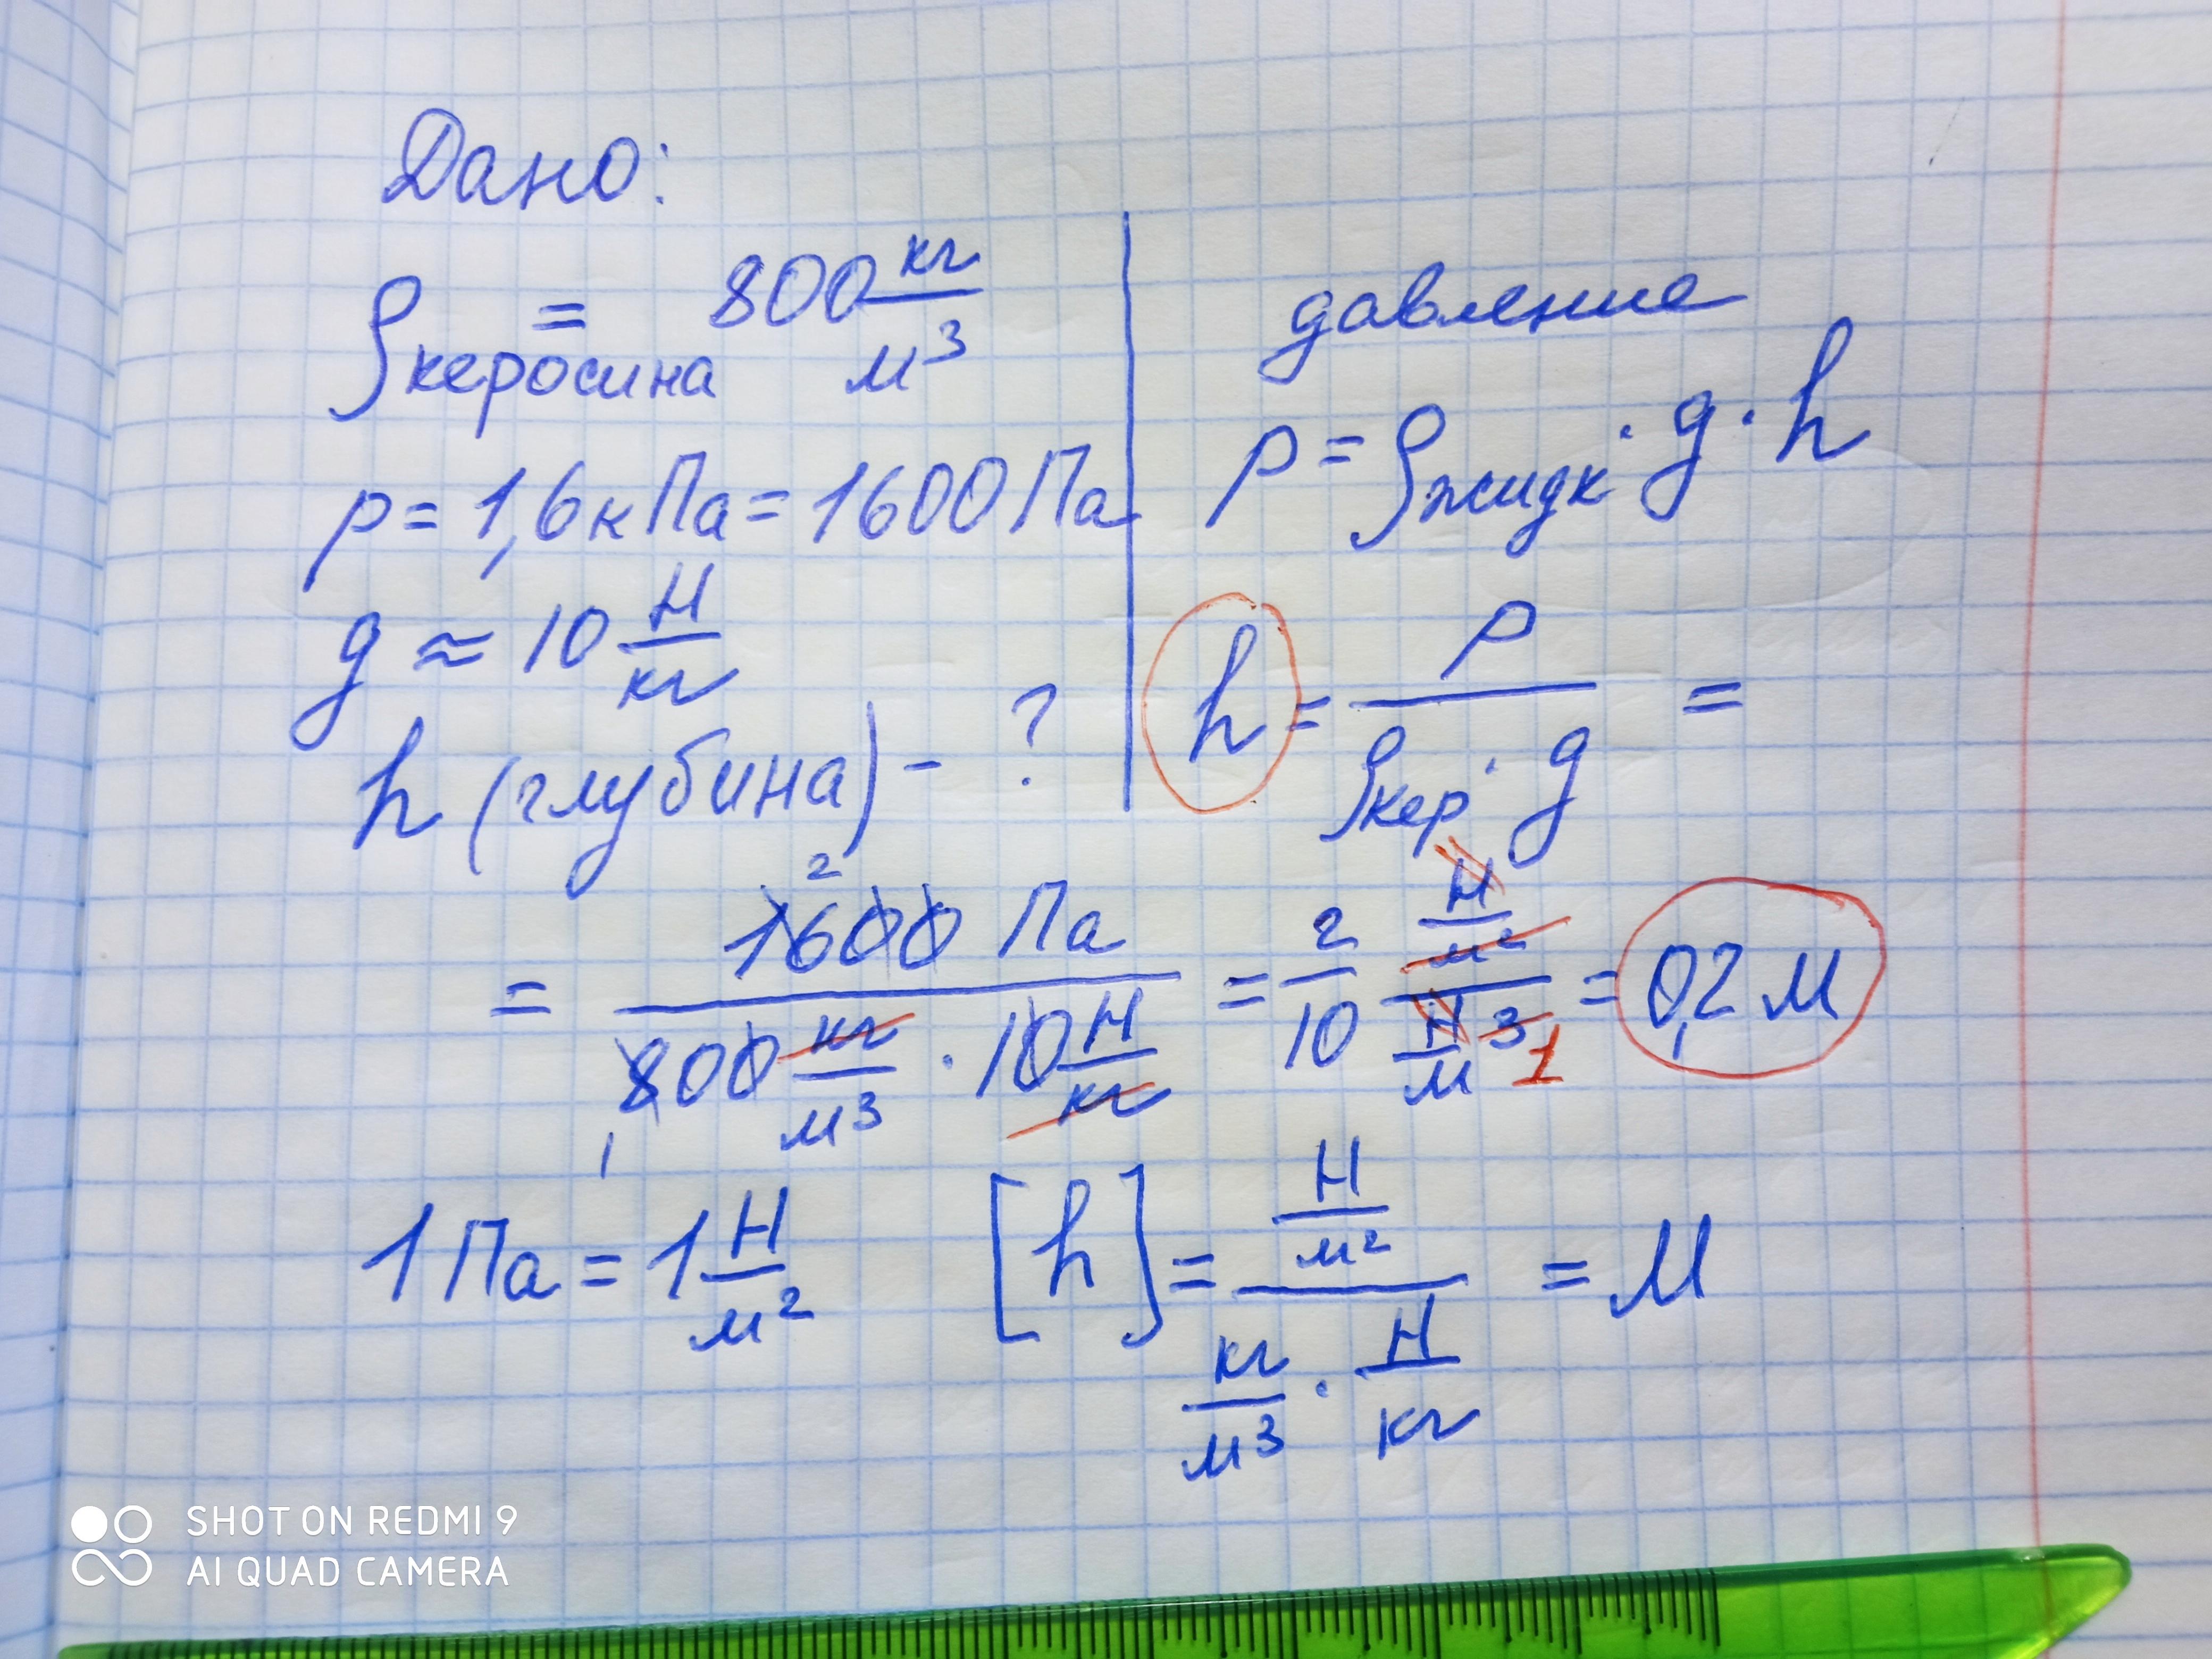 Дано:
ρкеросина = 800 кг/м³
p = 1,6 кПа = 1600 Па
g ≈ 10 Н/кг
h (глубина) - ?
давление
p = ρжидк · g · h
h = p/(ρкер · g) =
= 1600 Па/(800 кг/м³ · 10 Н/кг) = 2/10 (Н/м²)/(Н/м³) = 0,2 м
2
1
1
1 Па = 1 Н/м²
[h] = (Н/м²)/(кг/м³ · Н/кг) = м
SHOT ON REDMI 9
AI QUAD CAMERA